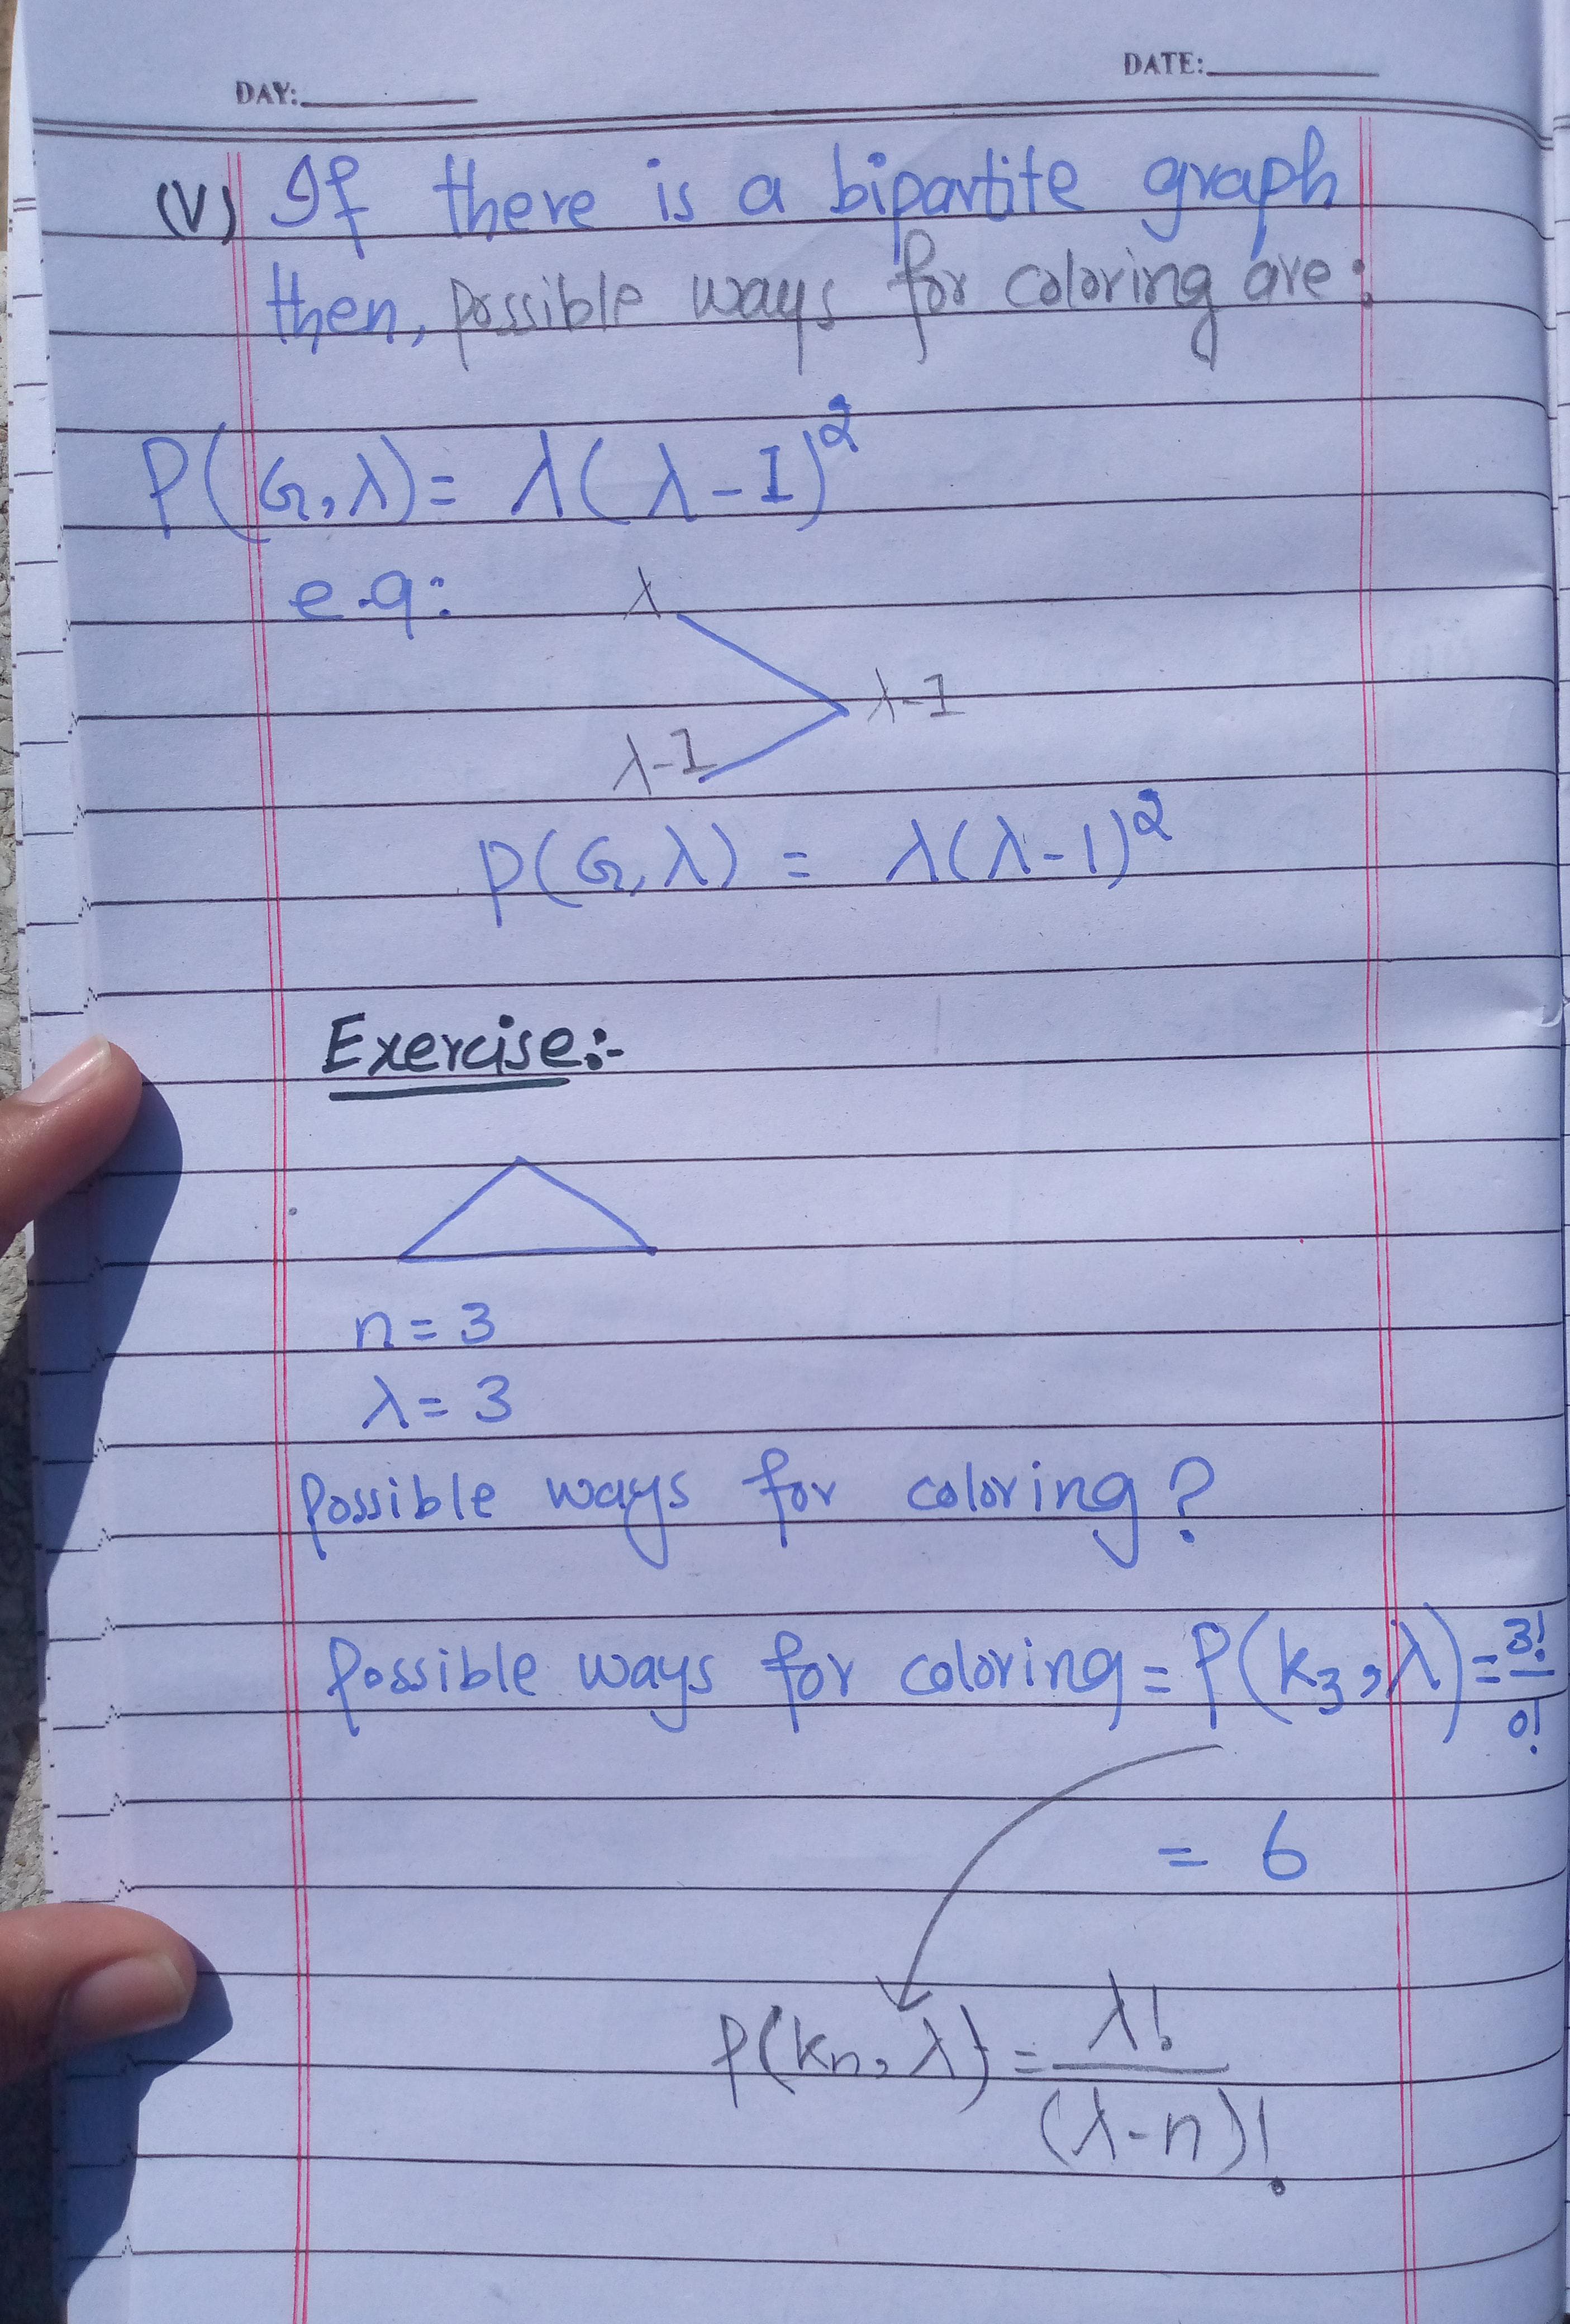 DAY:
DATE:
(V) If there is a bipartite graph
then, possible ways for coloring are:
P(G,λ) = λ(λ-1)²
e.g:
λ
λ-1
λ-1
P(G,λ) = λ(λ-1)²
Exercise:-
n = 3
λ = 3
Possible ways for coloring?
Possible ways for coloring = P(k₃,λ) = 3!/0!
= 6
P(kn,λ) = λ!/(λ-n)!